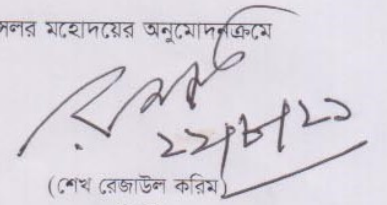 মহোদয়ের অনুমোদনক্রমে
২২/৮/২১
(শেখ রেজাউল করিম)